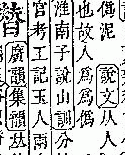 泥說文从人
也故人爲爲僞
淮南子說山訓分
官考工記玉人
廣韻集韻